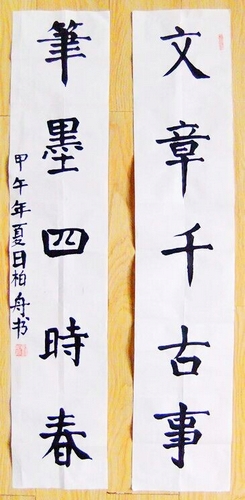 文章千古事
筆墨四時春
甲午年夏日柏舟书